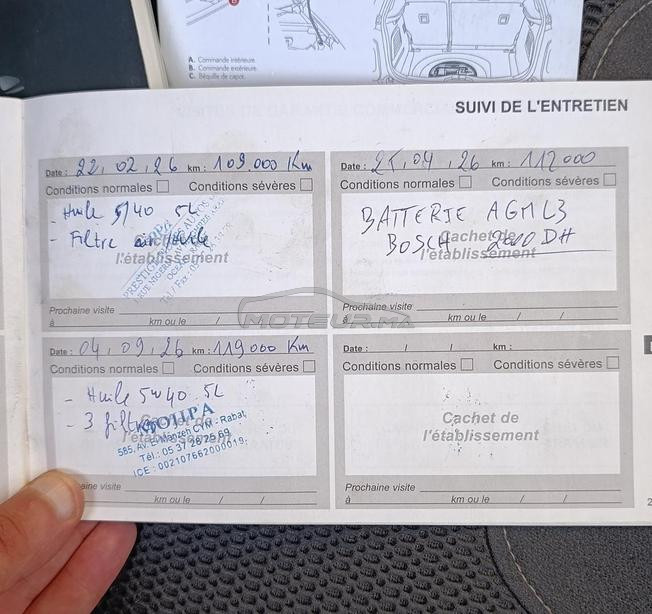 A. Commande intérieure.
B. Commande extérieure.
C. Béquille de capot.
SUIVI DE L'ENTRETIEN
Date : 22.02.26 km : 109.000 Km
Conditions normales Conditions sévères
- Huile 5/40 5L
- Filtre Huile
l'établissement
Prochaine visite
à km ou le / /
Date : 25.04.26 km : 112000
Conditions normales Conditions sévères
BATTERIE AGM L3
BOSCH 2000 DH
Cachet de
l'établissement
Prochaine visite
à km ou le / /
MOTEUR.MA
Date : 04.09.26 km : 119000 Km
Conditions normales Conditions sévères
- Huile 5w40 5L
- 3 filtres
KJOUPA
585, Av. El Manzeh CYM - Rabat,
Tél.: 05 37 28 25 69
ICE : 002107662000019
visite
km ou le / /
Date : / / km :
Conditions normales Conditions sévères
Cachet de
l'établissement
Prochaine visite
à km ou le / /